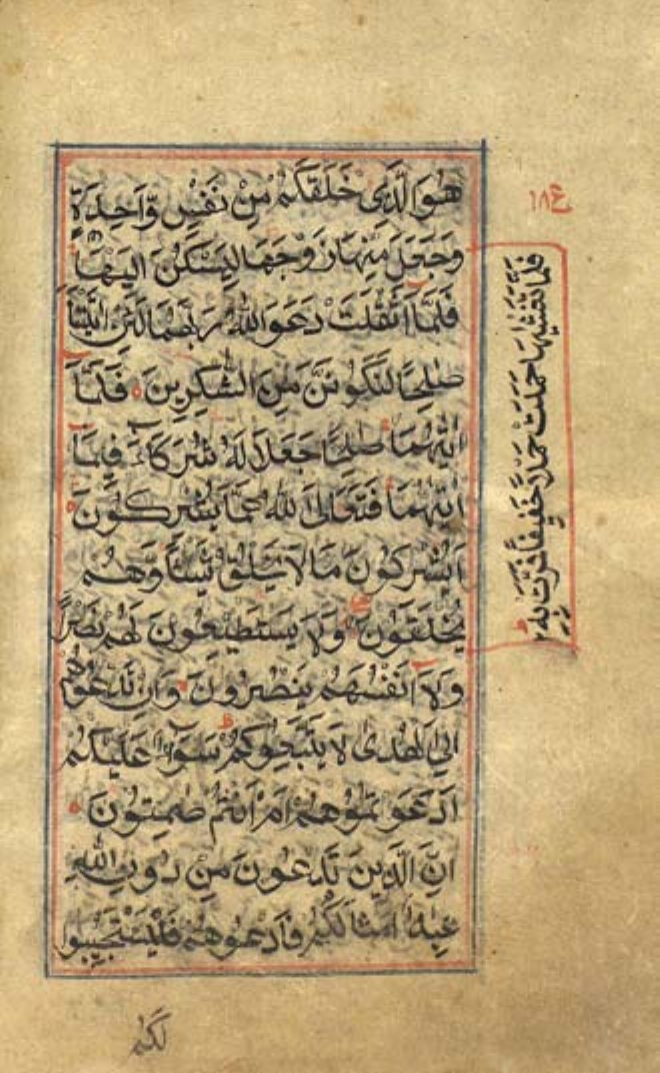 هُوَالَّذِى خَلَقَكُمْ مِنْ نَفْسٍ وَّاحِدَةٍ
وَجَعَلَ مِنْهَا زَوْجَهَا لِيَسْكُنَ اِلَيْهَا
فَلَمَّا اَثْقَلَتْ دَعَوَاللّٰهَ رَبَّهُمَا لَئِنْ اٰتَيْتَنَا
صٰلِحًا لَنَكُونَنَّ مِنَ الشّٰكِرِينَ فَلَمَّا
اٰتٰهُمَا صٰلِحًا جَعَلَا لَهُ شُرَكَآءَ فِيمَا
اٰتٰهُمَا فَتَعٰلَى اللّٰهُ عَمَّا يُشْرِكُونَ
اَيُشْرِكُونَ مَا لَا يَخْلُقُ شَيْـًٔا وَّهُمْ
يُخْلَقُونَ وَلَا يَسْتَطِيعُونَ لَهُمْ نَصْرًا
وَلَا اَنْفُسَهُمْ يَنْصُرُونَ وَاِنْ تَدْعُوهُمْ
اِلَى الْهُدٰى لَا يَتَّبِعُوكُمْ سَوَآءٌ عَلَيْكُمْ
اَدَعَوْتُمُوهُمْ اَمْ اَنْتُمْ صٰمِتُونَ
اِنَّ الَّذِينَ تَدْعُونَ مِنْ دُونِ اللّٰهِ
عِبَادٌ اَمْثَالُكُمْ فَادْعُوهُمْ فَلْيَسْتَجِيبُوا
لَكُمْ
فَلَمَّا تَغَشّٰيهَا حَمَلَتْ حَمْلًا خَفِيفًا فَمَرَّتْ بِهِ